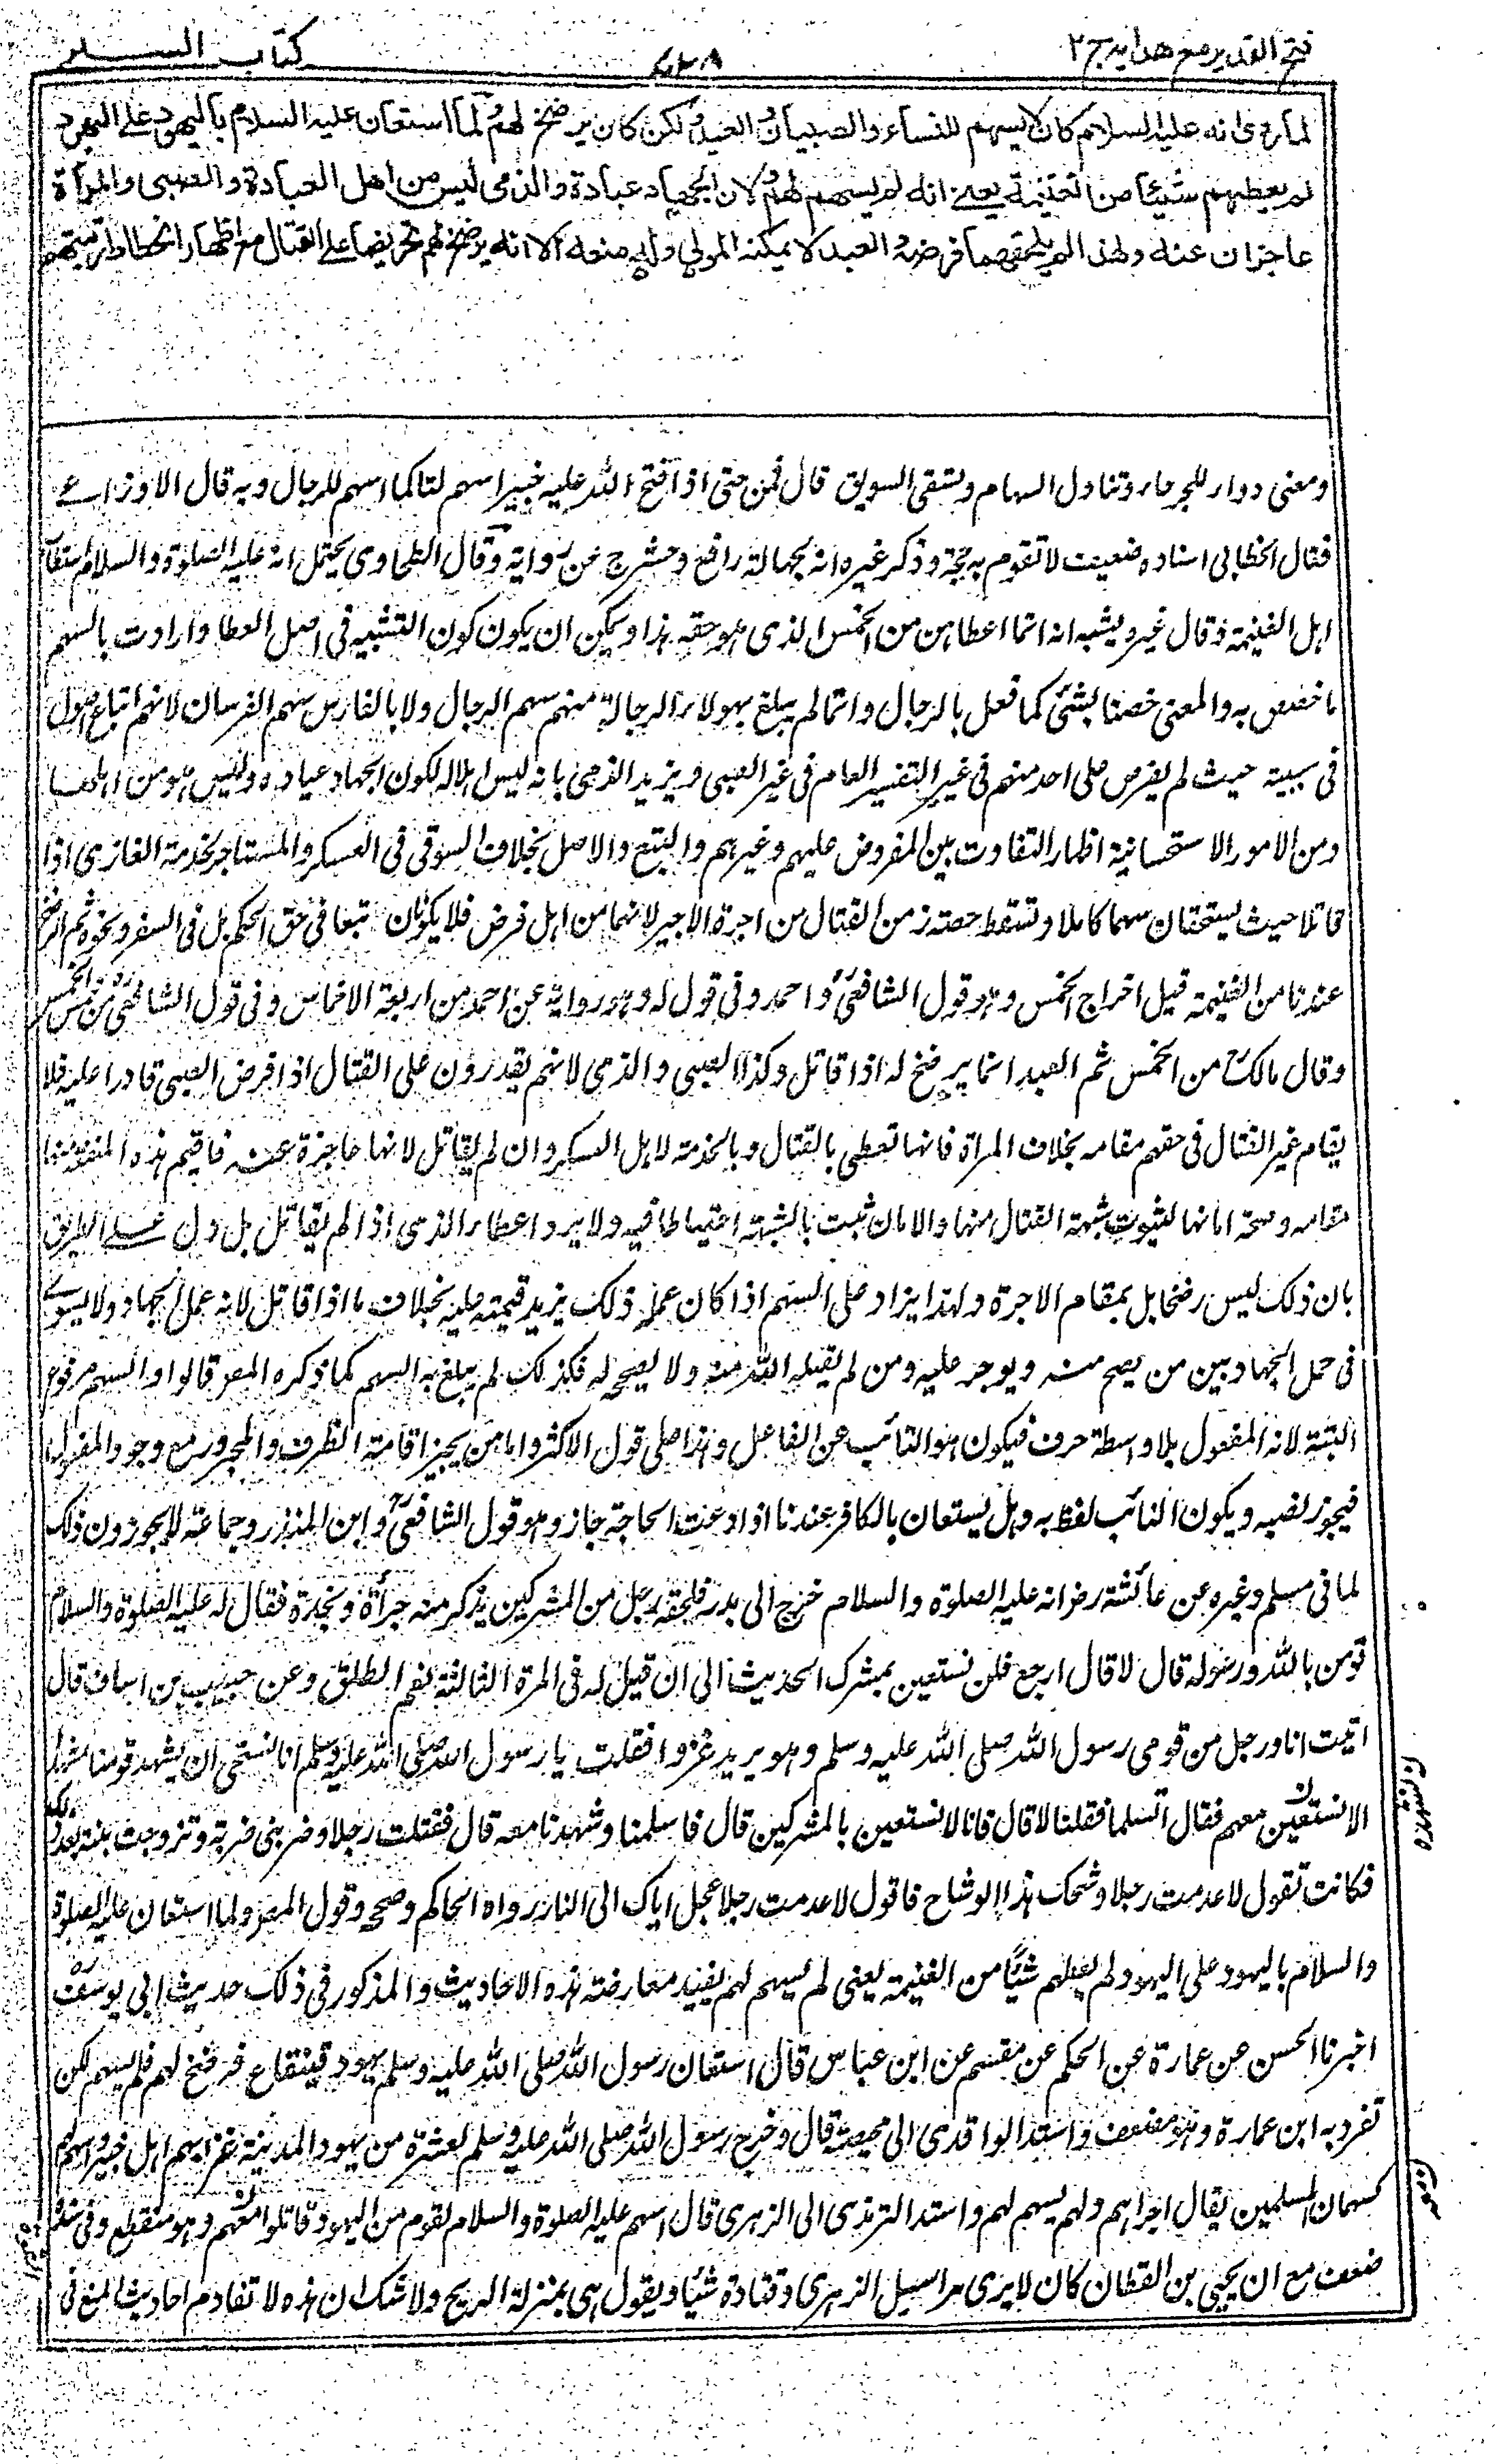 فتح القدير مع هدايه ج ٢
٧٣٨
كتاب السير
لما روى انه عليه السلام كان لا يسهم للنساء والصبيان والعبيد ولكن كان يرضخ لهم ولما استعان عليه السلام باليهود على اليهود
لم يعطهم شيئا من الغنيمة يعنے انه لم يسهم لهم ولان الجهاد عبادة والذمى ليس من اهل العبادة والصبى والمرأة
عاجزان عنه ولهذا لم يلحقهما فرضه والعبد لا يمكنه المولى وله منعه الا انه يرضخ لهم تحريضا على القتال مع اظهار انحطاط رتبتهم
ومعنى دواء للجرحاء وتناول السهام ونسقى السويق قال قمن حتى اذا فتح الله عليه خيبر اسهم لنا كما اسهم للرجال وبه قال الاوزاعے
فقال الخطابى اسناده ضعيف لا تقوم به حجة وذكر غيره انه بجهالة رافع وحشرج عن رواية وقال الطحاوى يحتمل انه عليه الصلوة والسلام استطاب
اهل الغنيمة وقال غيره يشبه انه انما اعطاهن من الخمس الذى هو حقه هذا ويمكن ان يكون كون التشبيه فى اصل العطا وارادت بالسهم
ما خصص به والمعنى خصنا بشئ كما فعل بالرجال وانما لم يبلغ بهولاء الرجالة منهم سهم الرجال ولا بالفارس سهم الفرسان لانهم اتباع اصول
فى سببية حيث لم يفرض على احد منهم فى غير النفير العام فى غير الصبى ويزيد الذمى بانه ليس اهلا له لكون الجهاد عبادة وليس هو من اهلها
ومن الامور الاستحسانية اظهار التفاوت بين المفروض عليهم وغيرهم والتبع والاصل بخلاف السوقى فى العسكر والمستاجر بخدمة الغازى اذا
قاتلا حيث يستحقان سهما كاملا وتسقط حصته زمن القتال من اجرة الاجير لانهما من اهل فرض فلا يكونان تبعا فى حق الحكم بل فى السفر ونحوه ثم الرضخ
عندنا من الغنيمة قبل اخراج الخمس وهو قول الشافعى واحمد وفى قول له وهو رواية عن احمد من اربعة الاخماس وفى قول الشافعى من خمس الخمس
وقال مالك من الخمس ثم العبد انما يرضخ له اذا قاتل وكذا الصبى والذمى لانهم يقدرون على القتال اذا فرض الصبى قادرا عليه فلا
يقام غير القتال فى حقهم مقامه بخلاف المرأة فانها تعطى بالقتال وبالخدمة لاهل العسكر وان لم يقاتل لانها عاجزة عنه فاقيم هذه المنفعة منها
مقامه وصحة امانها لثبوت شبهة القتال منها والامان يثبت بالشبهة احتياطا فيه ولا يرد اعطاء الذمى اذا لم يقاتل بل دل على الطريق
بان ذلك ليس رضخا بل بمقام الاجرة ولهذا يزاد على السهم اذا كان عمله ذلك يزيد قيمته عليه بخلاف ما اذا قاتل لانه عمل الجهاد ولا يسوے
فى عمل الجهاد بين من يصح منه ويوجر عليه ومن لم يقبله الله منه ولا يصححه له فكذلك لم يبلغ به السهم كما ذكره المصر قالوا والسهم مرفوع
البتة لانه المفعول بلا واسطة حرف فيكون هو النائب عن الفاعل وهذا على قول الاكثر واما من يجيز اقامة الظرف والمجرور مع وجود المفعول
فيجوز نصبه ويكون النائب لفظ به وهل يستعان بالكافر عندنا اذا دعت الحاجة جاز وهو قول الشافعى وابن المنذر وجماعة لا يجوزون ذلك
لما فى مسلم وغيره عن عائشة رض انه عليه الصلوة والسلام خرج الى بدر فلحقه رجل من المشركين يذكر منه جرأة ونجدة فقال له عليه الصلوة والسلام
تومن بالله ورسوله قال لا قال ارجع فلن نستعين بمشرك الحديث الى ان قيل له فى المرة الثالثة نعم الطلق وعن حبيب بن اساف قال
اتيت انا ورجل من قومى رسول الله صلى الله عليه وسلم وهو يريد غزوا فقلت يا رسول الله صلى الله عليه وسلم انا نستحى ان يشهد قومنا مشهدا
الا نستعين معهم فقال اتسلما فقلنا لا قال فانا لا نستعين بالمشركين قال فاسلمنا وشهدنا معه قال فقتلت رجلا وضربنى ضربة وتزوجت بنته بعد ذلك
فكانت تقول لا عدمت رجلا وشحك هذا الوشاح فاقول لا عدمت رجلا عجل اباك الى النار رواه الحاكم وصححه وقول المصر ولما استعان عليه الصلوة
والسلام باليهود على اليهود ولم يعطهم شيئا من الغنيمة يعنى لم يسهم لهم يفيد معارضة هذه الاحاديث والمذكور فى ذلك حديث ابى يوسف
اخبرنا الحسن عن عمارة عن الحكم عن مقسم عن ابن عباس قال استعان رسول الله صلى الله عليه وسلم بيهود قينقاع فرضخ لهم فلم يسهم لكن
تفرد به ابن عمارة وهو مضعف واسند الواقدى الى محيصة قال وخرج رسول الله صلى الله عليه وسلم بعشرة من يهود المدينة غزا بهم اهل خيبر واسهم لهم
كسهمان المسلمين يقال اجزاهم ولم يسهم لهم واسند الترمذى الى الزهرى قال اسهم عليه الصلوة والسلام لقوم من اليهود قاتلوا معهم وهو منقطع وفى سنده
ضعف مع ان يحيى بن القطان كان لا يرى مراسيل الزهرى وقتادة شيئا ويقول هى بمنزلة الريح ولا شك ان هذه لا تفادم احاديث المنع فى